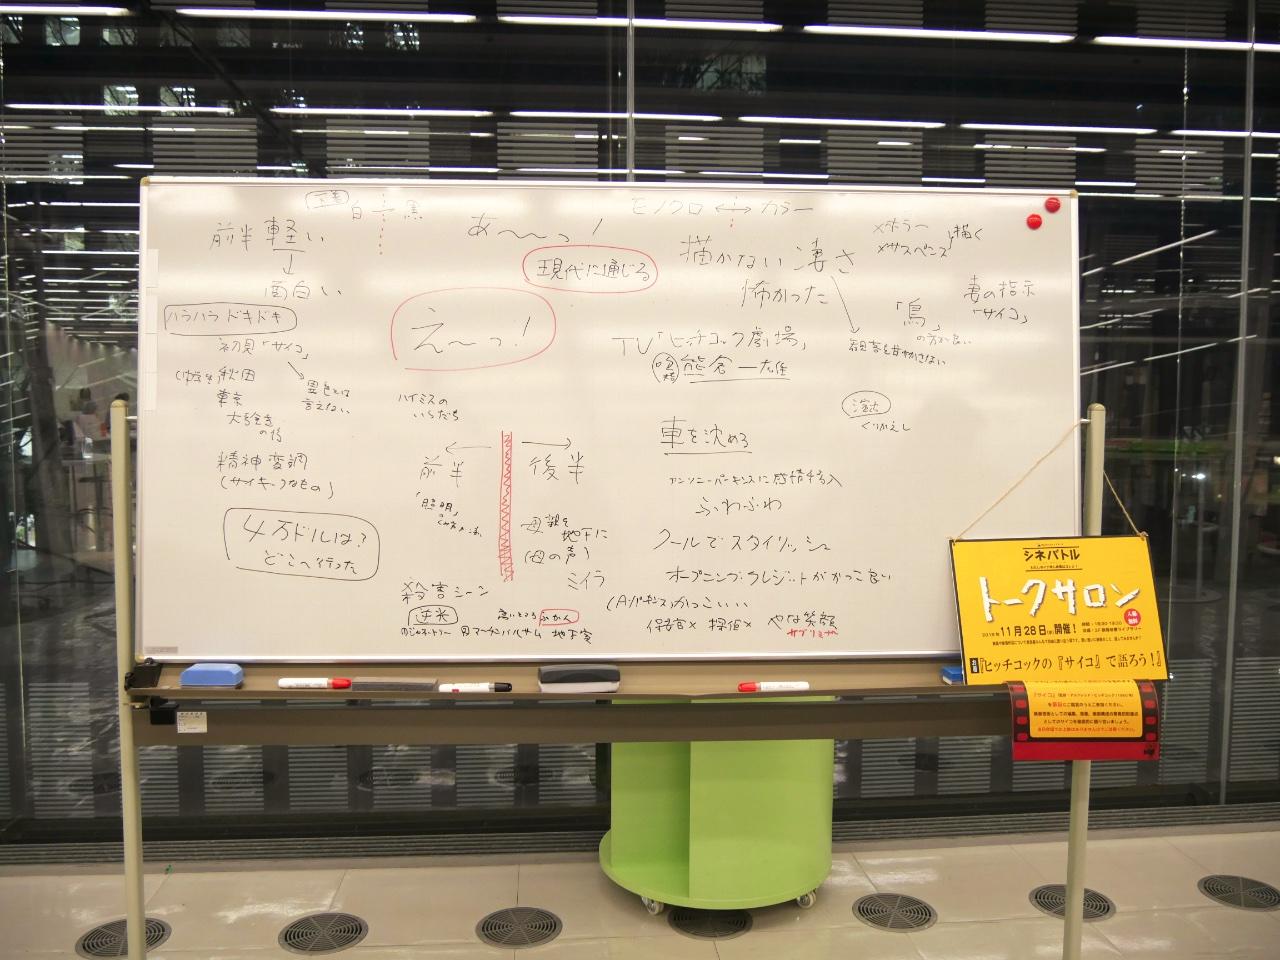 白 黒
前半軽い
↓
面白い
ハラハラ ドキドキ
初見「サイコ」
異色とは
言えない
秋田
東京
精神変調
(サイキックなもの)
4万ドルは?
どこへ行った
あ〜〜っ!
現代に通じる
え〜っ!
ハイミスの
いらだち
前半
後半
「照明」
母親を
地下に
(母の声)
ミイラ
殺害シーン
逆光
高いところ ふかん
地下室
モノクロ ←→ カラー
描かない 凄さ
怖かった
×ホラー
×サスペンス
描く
妻の指示
「サイコ」
「鳥」
の方が良い
観客を甘やかさない
TV「ヒッチコック劇場」
熊倉一雄
くりかえし
車を沈める
アンソニーパーキンスに感情移入
ふわふわ
クールでスタイリッシュ
オープニング・クレジットがかっこ良い
(A.パーキンス)かっこいい
保安官× 探偵× やな笑顔
サブリミナル
シネバトル
トークサロン
11月28日 開催!
『ヒッチコックの『サイコ』で語ろう!』